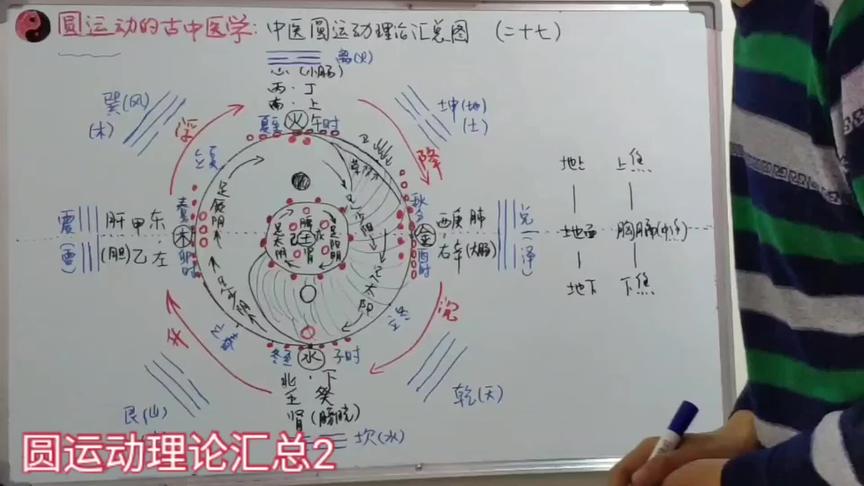 圆运动的古中医学: 中医圆运动理论汇总图 (二十七)
离(火)
心(小肠)
丙·丁
南·上
夏至 火 午时
巽(风)
(木)
浮
坤(地)
(土)
降
立夏
地上 上焦
足厥阴
足少阳
震
(雷)
肝 甲 东
(胆) 乙·左
春分
木
卯时
足太阴
土
足阳明
秋分
金
酉时
西 庚 肺
右·辛 (大肠)
兑
(泽)
地面 胸膈(中焦)
地下 下焦
足太阳
立冬
沉
升
冬至 水 子时
北·下
壬 癸
肾(膀胱)
坎(水)
艮(山)
乾(天)
圆运动理论汇总2